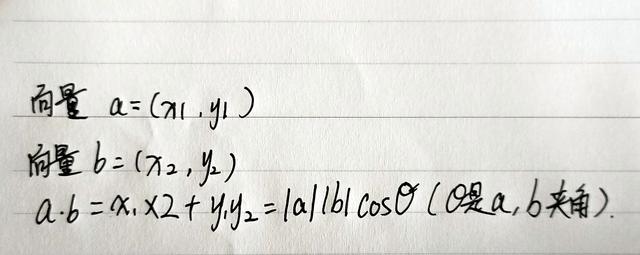 向量 a=(x1,y1)
向量 b=(x2,y2)
a·b=x1x2+y1y2=|a||b|cosθ(θ是a,b夹角).